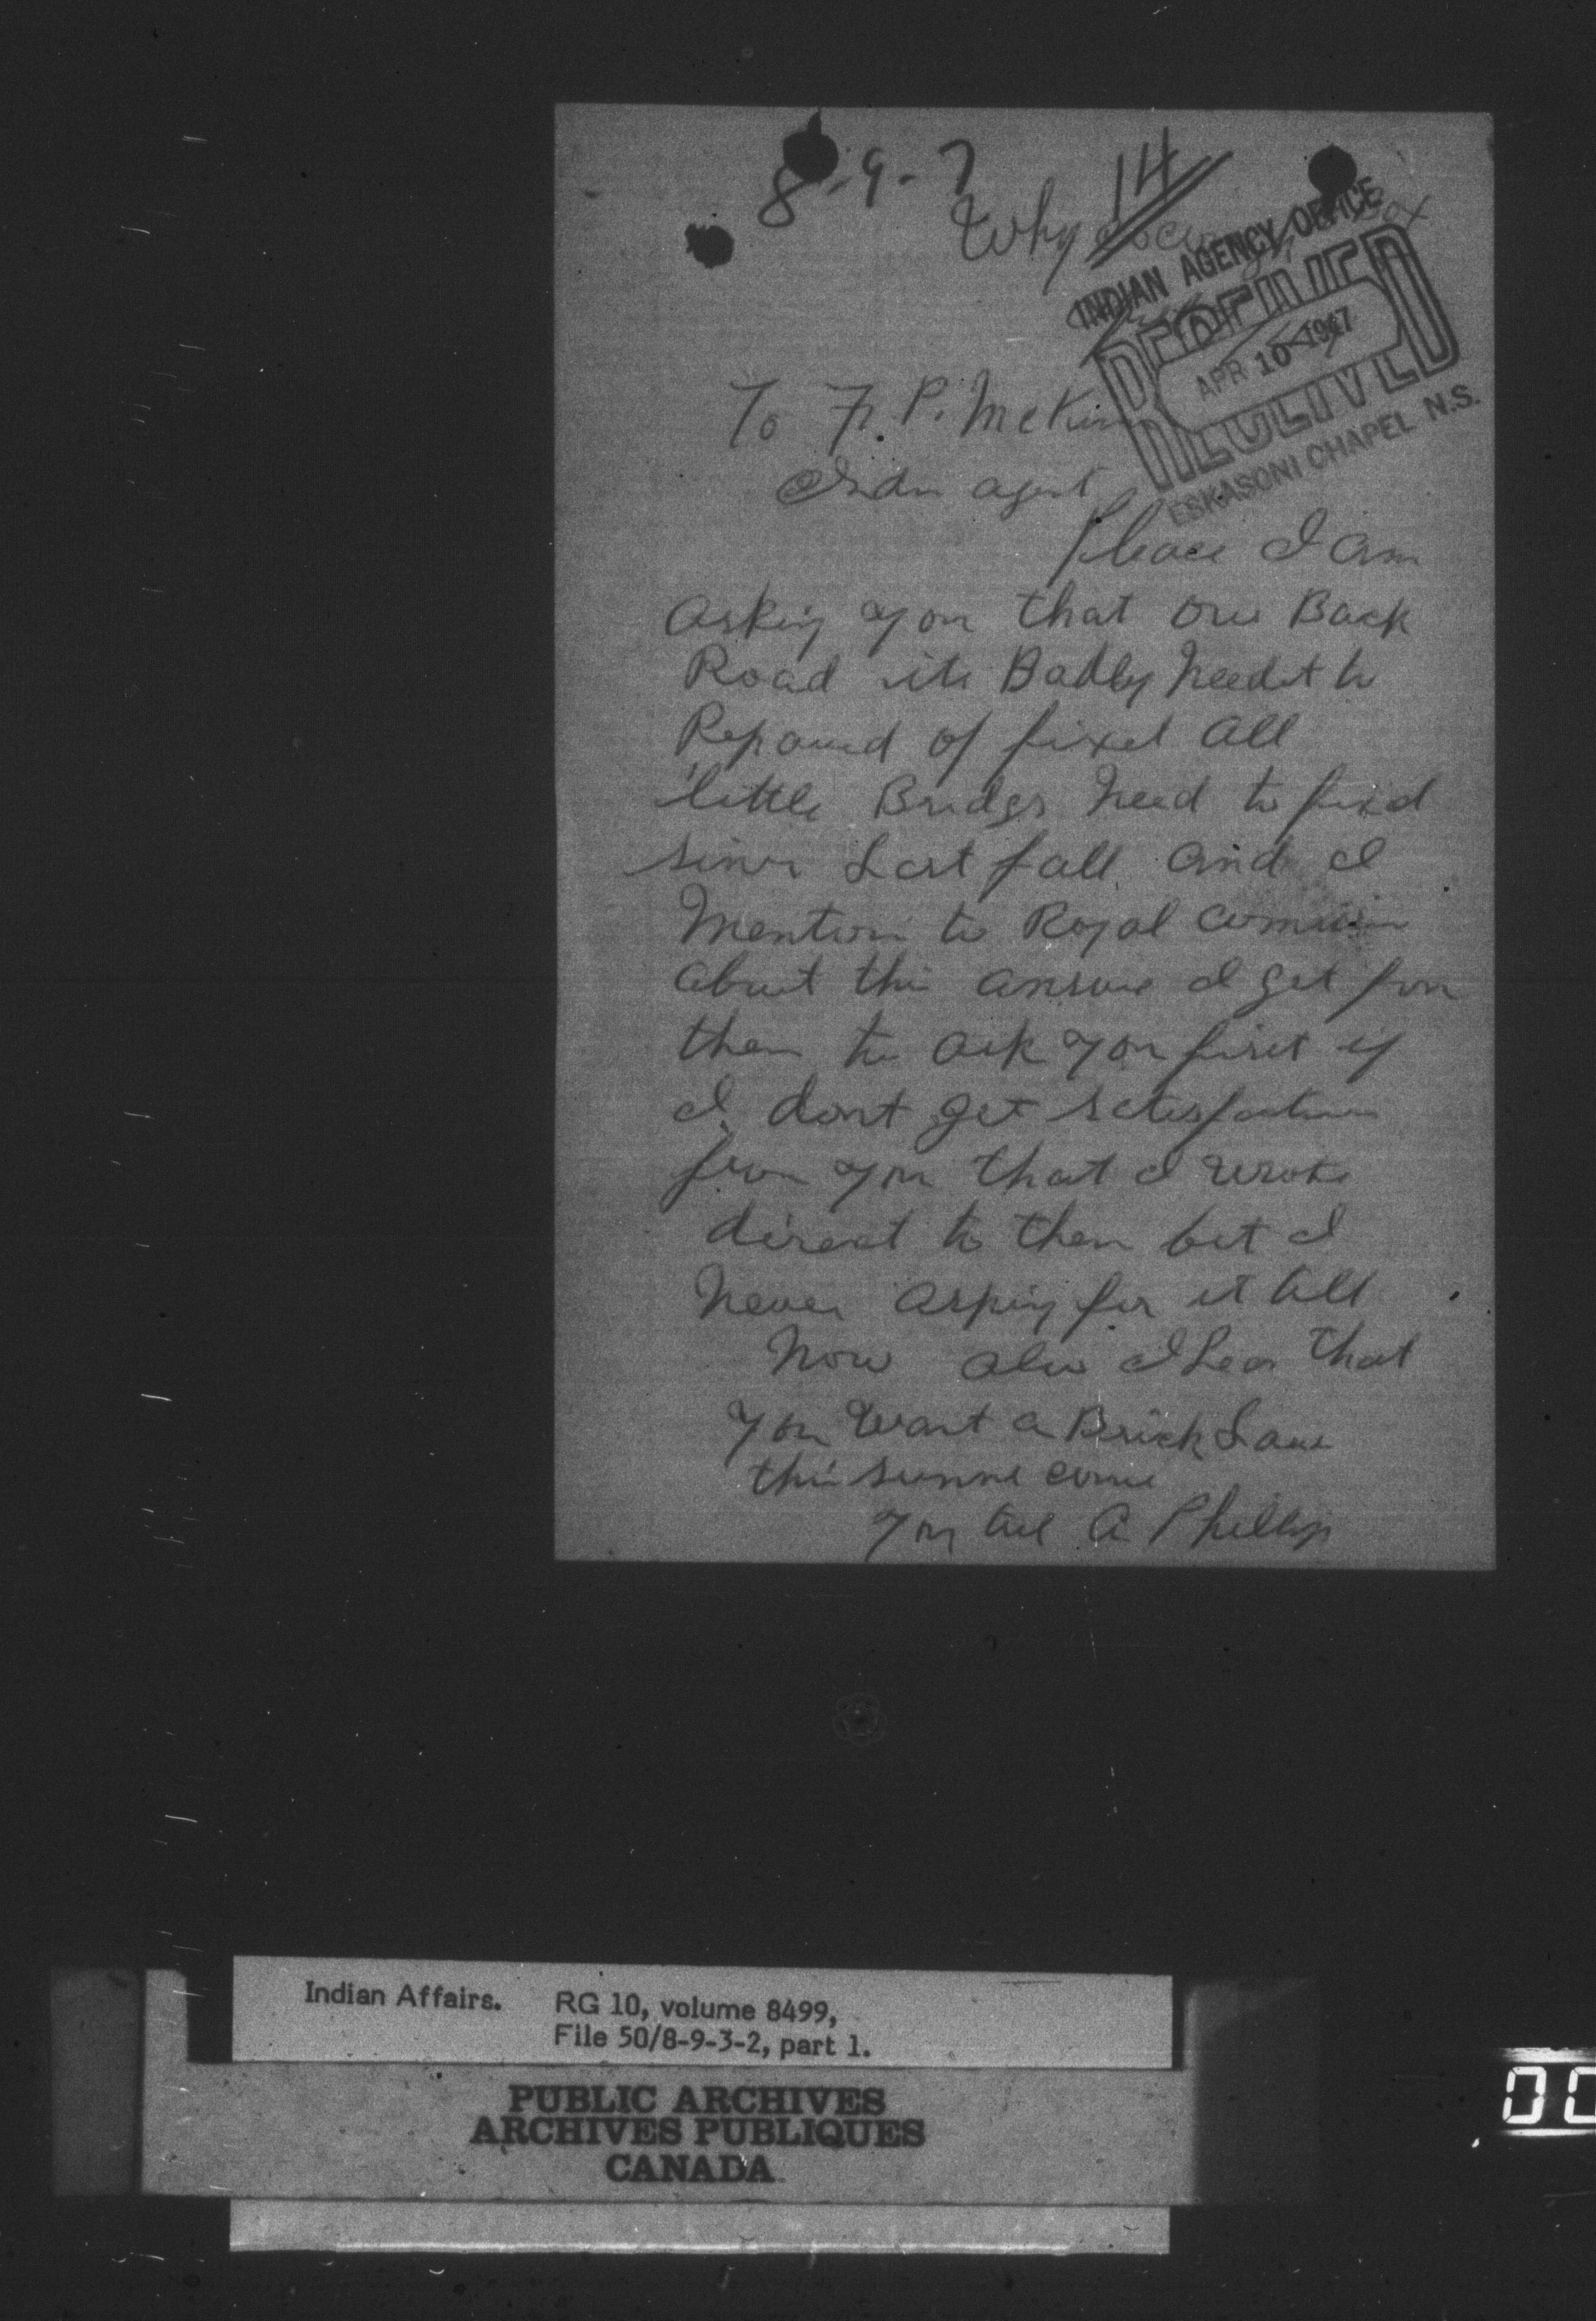 8-9-7
14
Why
INDIAN AGENCY OFFICE
RECEIVED
APR 10 1947
ESKASONI CHAPEL N.S.
To F. P. McKin
Indn agent
Pleace I am
asking you that Our Back
Road its Badly Needet to
Repaired of fixed all
little Bridges need to fixd
since Last fall and I
Mention to Royal
about this answe I get from
them to ask you first if
I dont get
from you that I wrote
direct to them but I
Never asking for it till
Now also I hea that
you want a Brick
this summe
you A Phillips
Indian Affairs. RG 10, volume 8499,
File 50/8-9-3-2, part 1.
PUBLIC ARCHIVES
ARCHIVES PUBLIQUES
CANADA